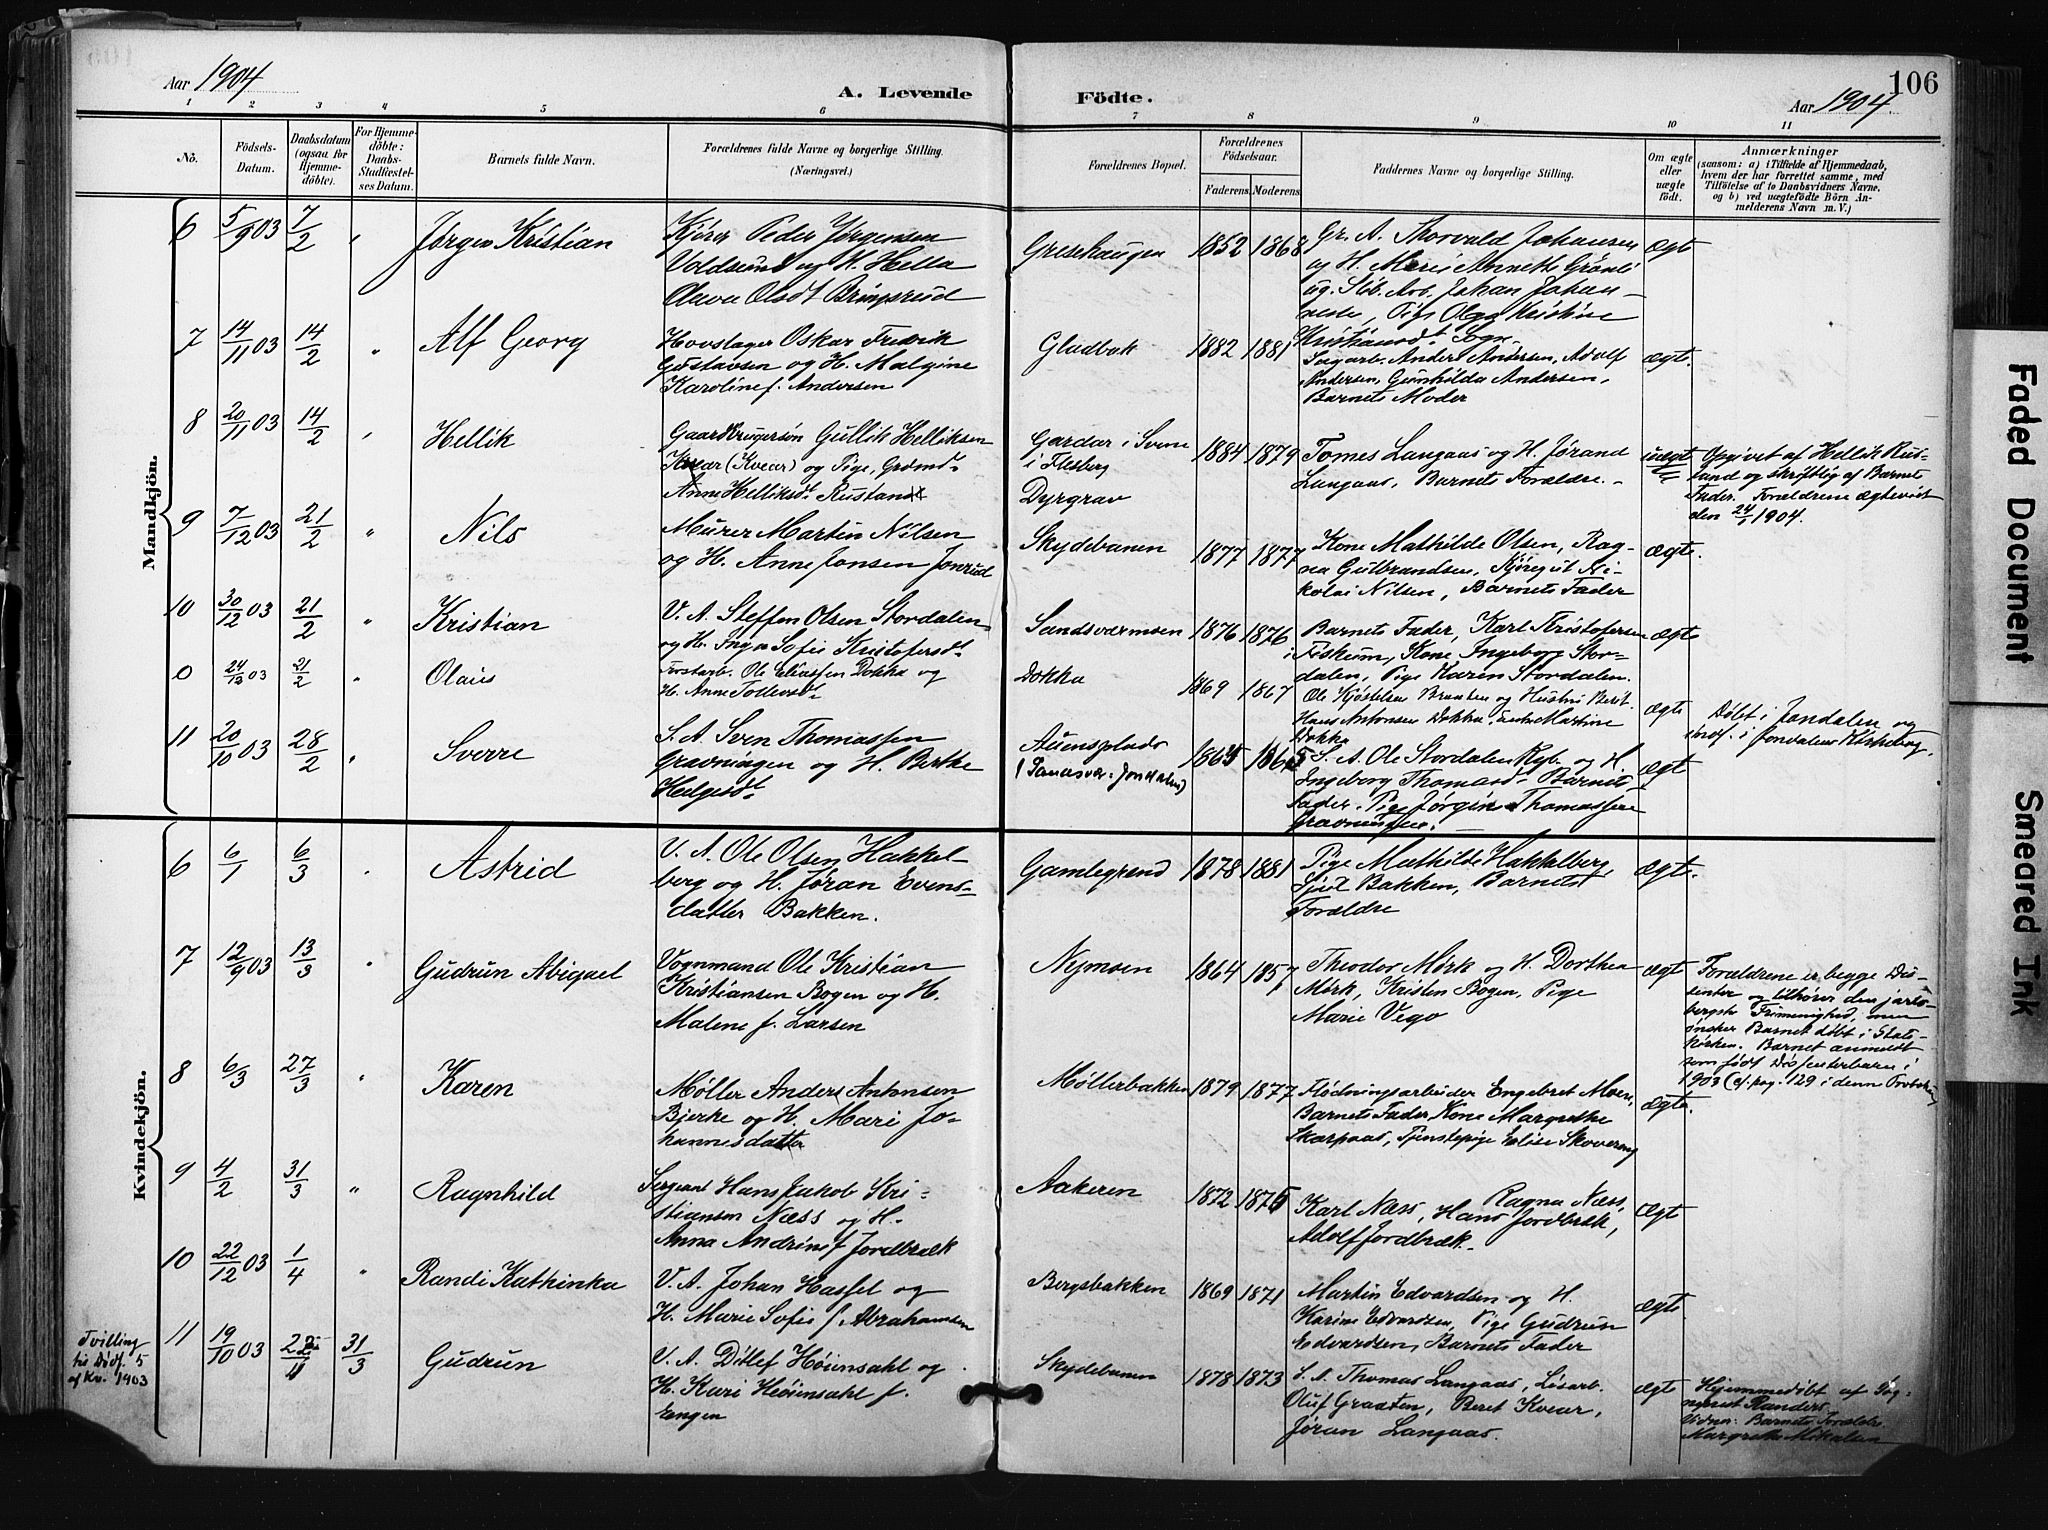 Aar 1904
A. Levende
Födte.
Aar 1904
106
1 2 3 4 5 6 7 8 9 10 11
No.
Födsels-
Datum.
Daabsdatum
(ogsaa for
Hjemme-
döbte).
For Hjemme-
döbte:
Daabs-
Stadfæstel-
ses Datum.
Barnets fulde Navn.
Forældrenes fulde Navne og borgerlige Stilling.
(Næringsvei.)
Forældrenes Bopæl.
Forældrenes
Födselsaar.
Faderens Moderens
Faddernes Navne og borgerlige Stilling.
Om ægte
eller
uægte
födt.
Anmærkninger
(saasom: a) i Tilfælde af Hjemmedaab,
hvem der har forrettet samme, med
Tilföielse af to Daabsvidners Navne.
og b) ved uægtefödte Börn An-
melderens Navn m. V.)
Mandkjön.
6 5/9 03 7/2 " Jørgen Kristian
Kjører Peder Jørgensen
Voldsund og H. Hella
Olava Olsdt Bringsrud
Gresehaugen 1852 1868
Gr. A. Thorvald Johansen
og H. Marie Annethe Grönli
ug. Slib. Arb. Johan Johan-
nesen, Pige Olga Kristine
Ægte
7 14/11 03 14/2 " Alf Georg
Hovslager Oskar Fredrik
Gustavsen og H. Malgine
Karoline f. Andersen
Gladbak 1882 1881
Sagarb. Anders Andersen, Adolf
Andersen, Gunhilda Andersen,
Barnets Moder
ægte.
8 20/11 03 14/2 " Hellik
Gaardbrugersøn Gullik Helliksen
Kvær (Kvear) og Pige, Grømd.
Anne Helliksdt Rustand
Gardar i Svene
i Flesberg
Dyrgrav
1884 1879
Tomes Langaas og H. Jørand
Langaas, Barnets Forældre.
uægte
Opgivet af Hellik Rus-
tand og skriftlig af Barnets
Fader. Forældrene ægteviet
den 24/1 1904.
9 7/12 03 21/2 " Nils
Murer Martin Nilsen
og H. Anne Jonsen Jonrud
Skydebanen 1877 1877
Kone Mathilde Olsen, Rag-
na Gulbrandsen, Kjøregut Ni-
kolai Nilsen, Barnets Fader
Ægte.
10 30/12 03 21/2 " Kristian
V. A. Steffen Olsen Stordalen
og H. Inga Sofie Kristofersdt
Sandsværmoen 1876 1876
Barnets Fader, Karl Kristofersen
i Fiskum, Kone Ingeborg Stor-
dalen, Pige Karen Stordalen.
Ægte
0 24/12 03 21/2 " Olaus
Forstarb. Ole Eliassen Dokka og
H. Anne Tollevsdt
Dokka 1869 1867
Ole Kjøstelsen Braaten og Hustru Berit.
Hans Antonsen Dokka Martine
Dokka
Ægte
Døbt i Jondalen og
indf. i Jondalens Kirkebog.
11 20/10 03 28/2 " Sverre
S. A. Sven Thomassen
Gravningen og H. Berthe
Helgesdt
Auensplads
(Sandsvær-Jondalen)
1865 1865
S. A. Ole Stordalen Ryb. og H.
Ingeborg Thomasdt Barnets
Fader. Pige Jørgine Thomassen
Gravningen.
Ægte
Kvindekjön.
6 6/1 6/3 " Astrid
V. A. Ole Olsen Hakkel-
berg og H. Jøran Evens-
datter Bakken.
Gamlegrend 1878 1881
Pige Mathilde Hakkelberg,
Sjul Bakken, Barnets
Forældre
ægte.
7 12/9 03 13/3 " Gudrun Abigael
Vognmand Ole Kristian
Kristiansen Bogen og H.
Malene f. Larsen
Nymoen 1864 1857
Theodor Mørk og H. Dorthea
Mørk, Kristen Bogen, Pige
Marie Vego
ægte
Forældrene er begge Dis-
senter og tilhører den jarls-
bergske Frimenighed, men
ønsker Barnet døbt i Stats-
kirken. Barnet anmeldt
som født Dissenterbarn i
1903 (cf. pag. 129 i denne Protokol)
8 6/3 27/3 " Karen
Møller Anders Antonsen
Bjerke og H. Mari Jo-
hannesdatter
Møllerbakken 1879 1877
Flødningsarbeider Engebret Moen,
Barnets Fader, Kone Margrethe
Skarpaas, Tjenstepige Elise Skoveng
ægte.
9 4/2 31/3 " Ragnhild
Sergeant Hans Jakob Kri-
stiansen Næss og H.
Anna Andrine f. Jordbræk
Aakeren 1872 1875
Karl Næss, Ragna Næss,
Hans Jordbræk,
Adolf Jordbræk.
ægte
10 22/12 03 1/4 " Randi Kathinka
V. A. Johan Hassel og
H. Marie Sofie f. Abrahamsen
Bergsbakken 1869 1871
Martin Edvardsen og H.
Karine Edvardsen, Pige Gudrun
Edvardsen, Barnets Fader
ægte
Tvilling
til Dødf. 5
af Kv. 1903
11 19/10 03 31/3 Gudrun
V. A. Ditlef Høiensahl og
H. Kari Høiensahl f.
Engen
Skydebanen 1878 1873
S. A. Thomas Langaas, Løsarb.
Oluf Graaten, Beret Kvear,
Jøran Langaas.
ægte
Hjemmedøbt af Sog-
neprest Randers
Vidner: Barnets Forældre
Margrethe Mikalsen
Faded Document
Smeared Ink